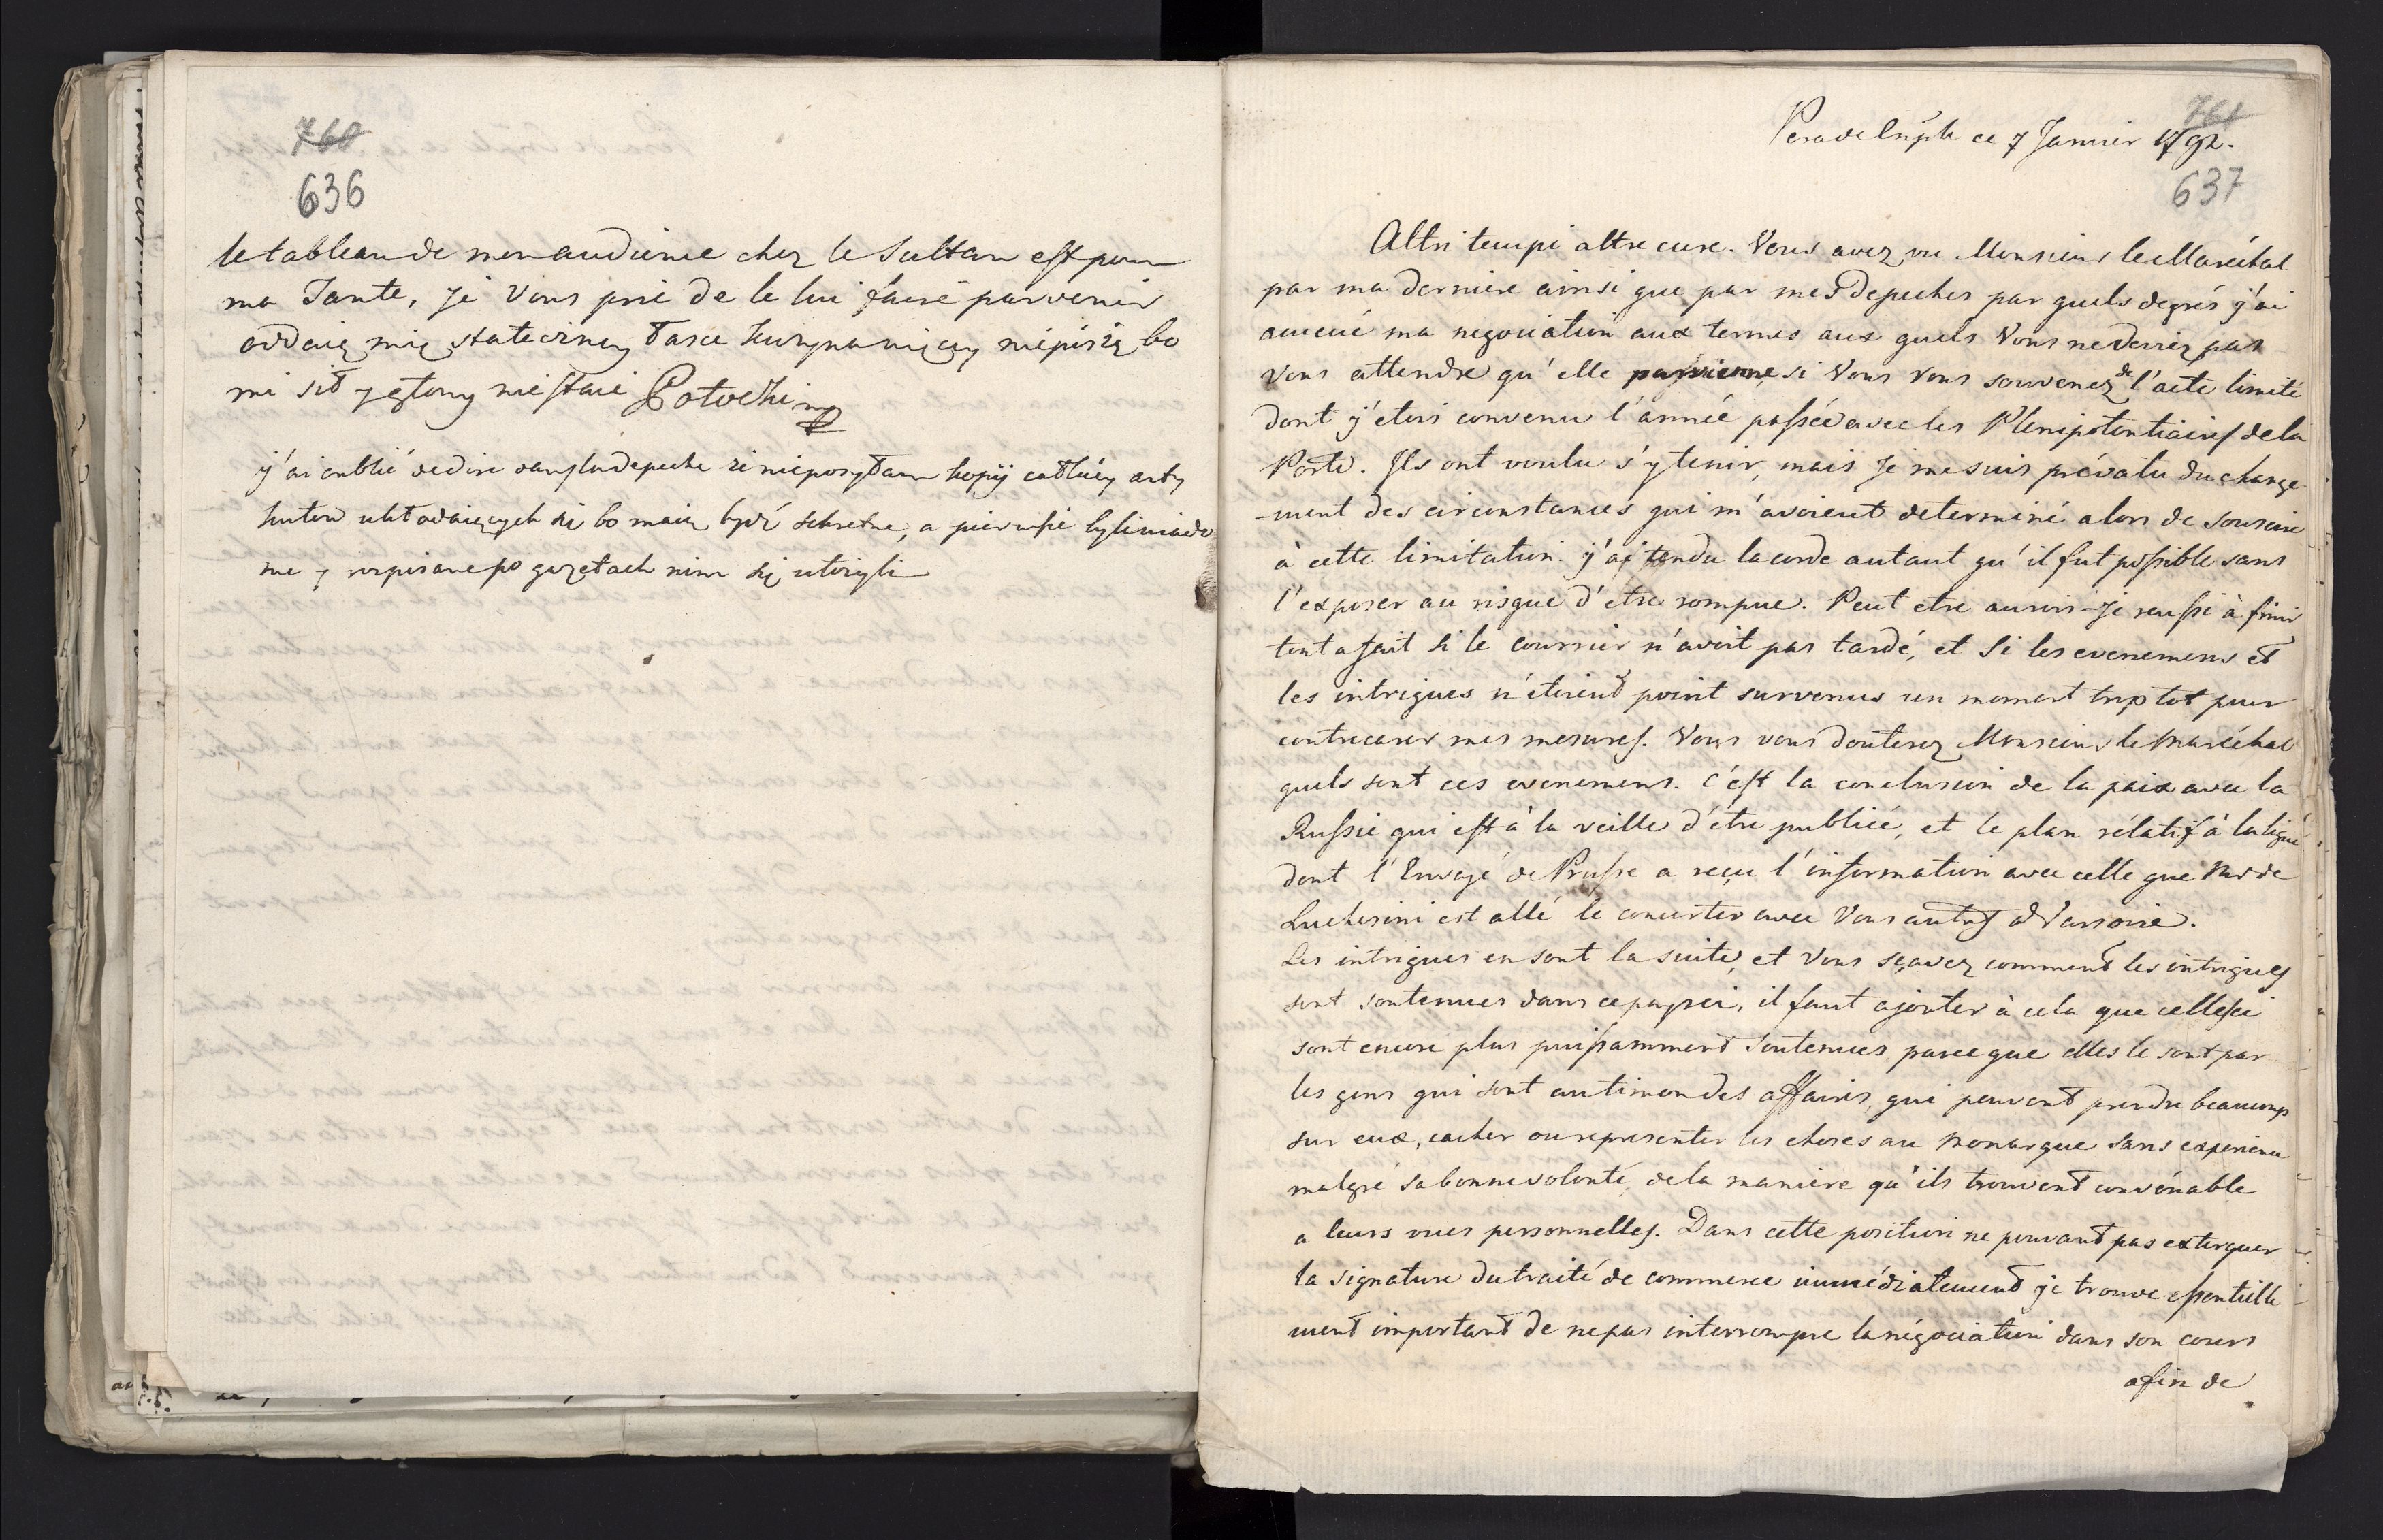 760
636
le tableau de mon audience chez le Sultan est pour
ma Tante, je Vous prie de le lui faire parvenir
oddaię mię stateczney łasce nie piszę bo
mi sił y ręka nie staie Potocki mp
j'ai oublié de dire dans la depeche że nie posyłam kopij całkiey arty
kułow układaiących się bo maią bydź sekretne, a pierwsze byli wiado
me y rozpisane po gazetach nim się utożyli
761
Pera de Cnple ce 7 Janvier 1792.
637
Altri tempi altre cure. Vous avez vu Monsieur le Maréchal
par ma derniere ainsi que par mes depeches par quels degrés j'ai
amené ma negociation aux termes aux quels Vous ne deviez pas
Vous attendre qu'elle parvienne, si Vous Vous souvenez de l'acte limité
dont j'etois convenu l'année passée avec les Plenipotentiaires de la
Porte. Ils ont voulu s'y tenir, mais Je me suis prévalu du change-
-ment des circonstances qui m'avoient determiné alors de souscrire
à cette limitation. j'ai tendu la corde autant qu'il fut possible sans
l'exposer au risque d'etre rompue. Peut etre aurois-Je reussi à finir
tout a fait si le courrier n'avoit pas tardé, et si les evenemens et
les intrigues n'etoient point survenus un moment trop tot pour
contrecarer mes mesures. Vous vous douterez Monsieur le Maréchal
quels sont ces evenemens. C'est la conclusion de la paix avec la
Russie qui est à la veille d'être publiée, et le plan rélatif à la ligue
dont l'Envoyé de Prusse a reçu l'information avec celle que Mr de
Luchesini est allé le concerter avec Vous autres à Varsovie.
Les intrigues en sont la suite, et Vous sçavez comment les intrigues
sont soutenues dans ce pays ci, il faut ajouter à cela que celles ci
sont encore plus puissamment soutenues parce que elles le sont par
les gens qui sont au timon des affaires, qui peuvent prendre beaucoup
sur eux, cacher ou representer les choses au Monarque sans experience
malgré sa bonne volonté, de la manière qu'ils trouvent convénable
a leurs vues personnelles. Dans cette position ne pouvant pas extorquer
la signature du traité de commerce immédiatement je trouve essentielle
ment important de ne pas interrompre la négociation dans son cours
afin de